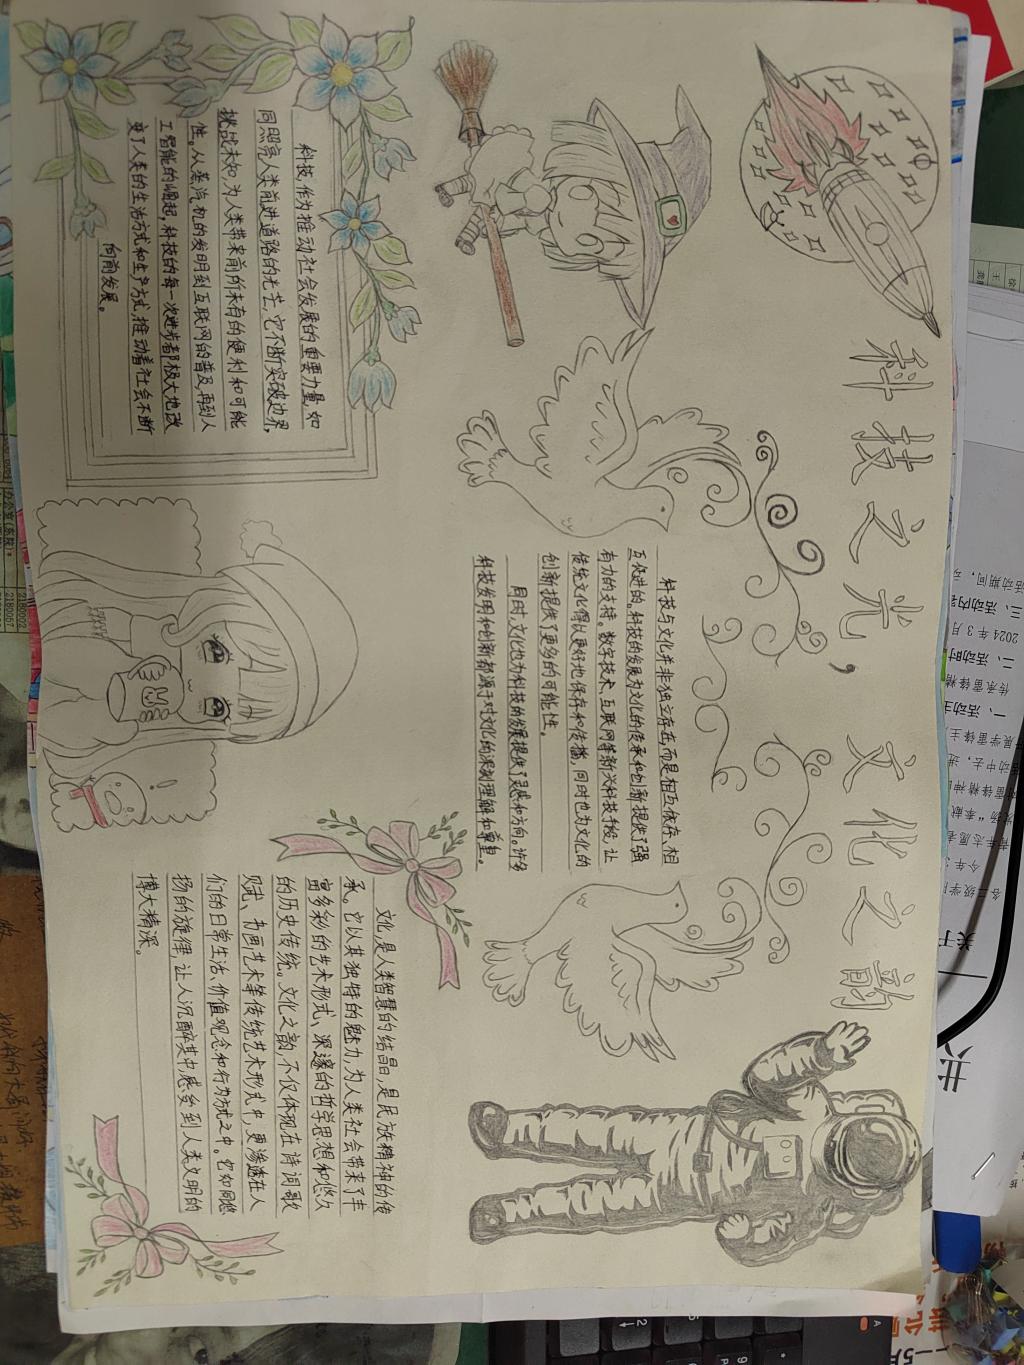 科技之光，文化之韵
科技，作为推动社会发展的重要力量，如
同照亮人类前进道路的光芒，它不断突破边界，
挑战未知，为人类带来前所未有的便利和可能
性。从蒸汽机的发明到互联网的普及，再到人
工智能的崛起，科技的每一次进步都极大地改
变了人类的生活方式和生产方式，推动着社会不断
向前发展。
科技与文化并非独立存在，而是相互依存、相
互促进的。科技的发展为文化的传承和创新提供了强
有力的支持。数字技术、互联网等新兴科技手段，让
传统文化得以更好地保存和传播，同时也为文化的
创新提供了更多的可能性。
同时，文化也为科技的发展提供了灵感和方向。许多
科技发明和创新都源于对文化的深刻理解和尊重。
文化，是人类智慧的结晶，是民族精神的传
承。它以其独特的魅力，为人类社会带来了丰
富多彩的艺术形式、深邃的哲学思想和悠久
的历史传统。文化之韵，不仅体现在诗词歌
赋、书画艺术等传统艺术形式中，更渗透在人
们的日常生活、价值观念和行为方式之中。它如同悠
扬的旋律，让人沉醉其中，感受到人类文明的
博大精深。
2024年3月
三、活动内容
二、活动时
传承雷锋精
一、活动主
关于
2180002
2180067